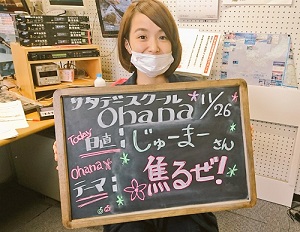 サタデースクール
ohana 11/26
Today 日直 じゅーまーさん
Ohana テーマ 焦るぜ!